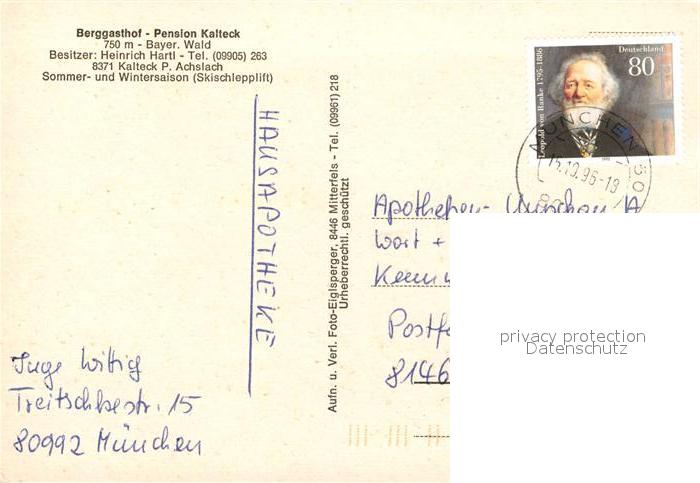 Berggasthof - Pension Kalteck
750 m - Bayer. Wald
Besitzer: Heinrich Hartl - Tel. (09905) 263
8371 Kalteck P. Achslach
Sommer- und Wintersaison (Skischlepplift)
HAUSAPOTHEKE
Inge Wittig
Treitschkestr. 15
80992 München
Aufn. u. Verl. Foto-Eiglsperger, 8446 Mitterfels - Tel. (09961) 218
Urheberrechtl. geschützt
Deutschland
80
Leopold von Ranke 1795-1886
MÜNCHEN
15.10.96-19
80
Wort +
Postf
8146
privacy protection
Datenschutz